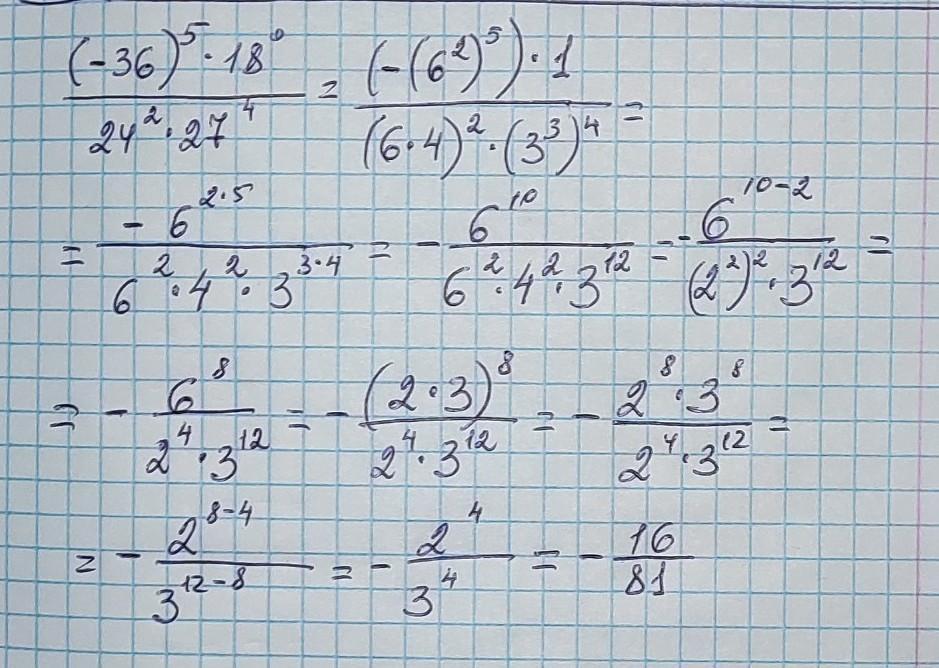 (-36)^5 · 18^0 / 24^2 · 27^4 = (-(6^2)^5) · 1 / (6·4)^2 · (3^3)^4 =
= -6^{2·5} / 6^2 · 4^2 · 3^{3·4} = - 6^{10} / 6^2 · 4^2 · 3^{12} = - 6^{10-2} / (2^2)^2 · 3^{12} =
= - 6^8 / 2^4 · 3^{12} = - (2·3)^8 / 2^4 · 3^{12} = - 2^8 · 3^8 / 2^4 · 3^{12} =
= - 2^{8-4} / 3^{12-8} = - 2^4 / 3^4 = - 16 / 81